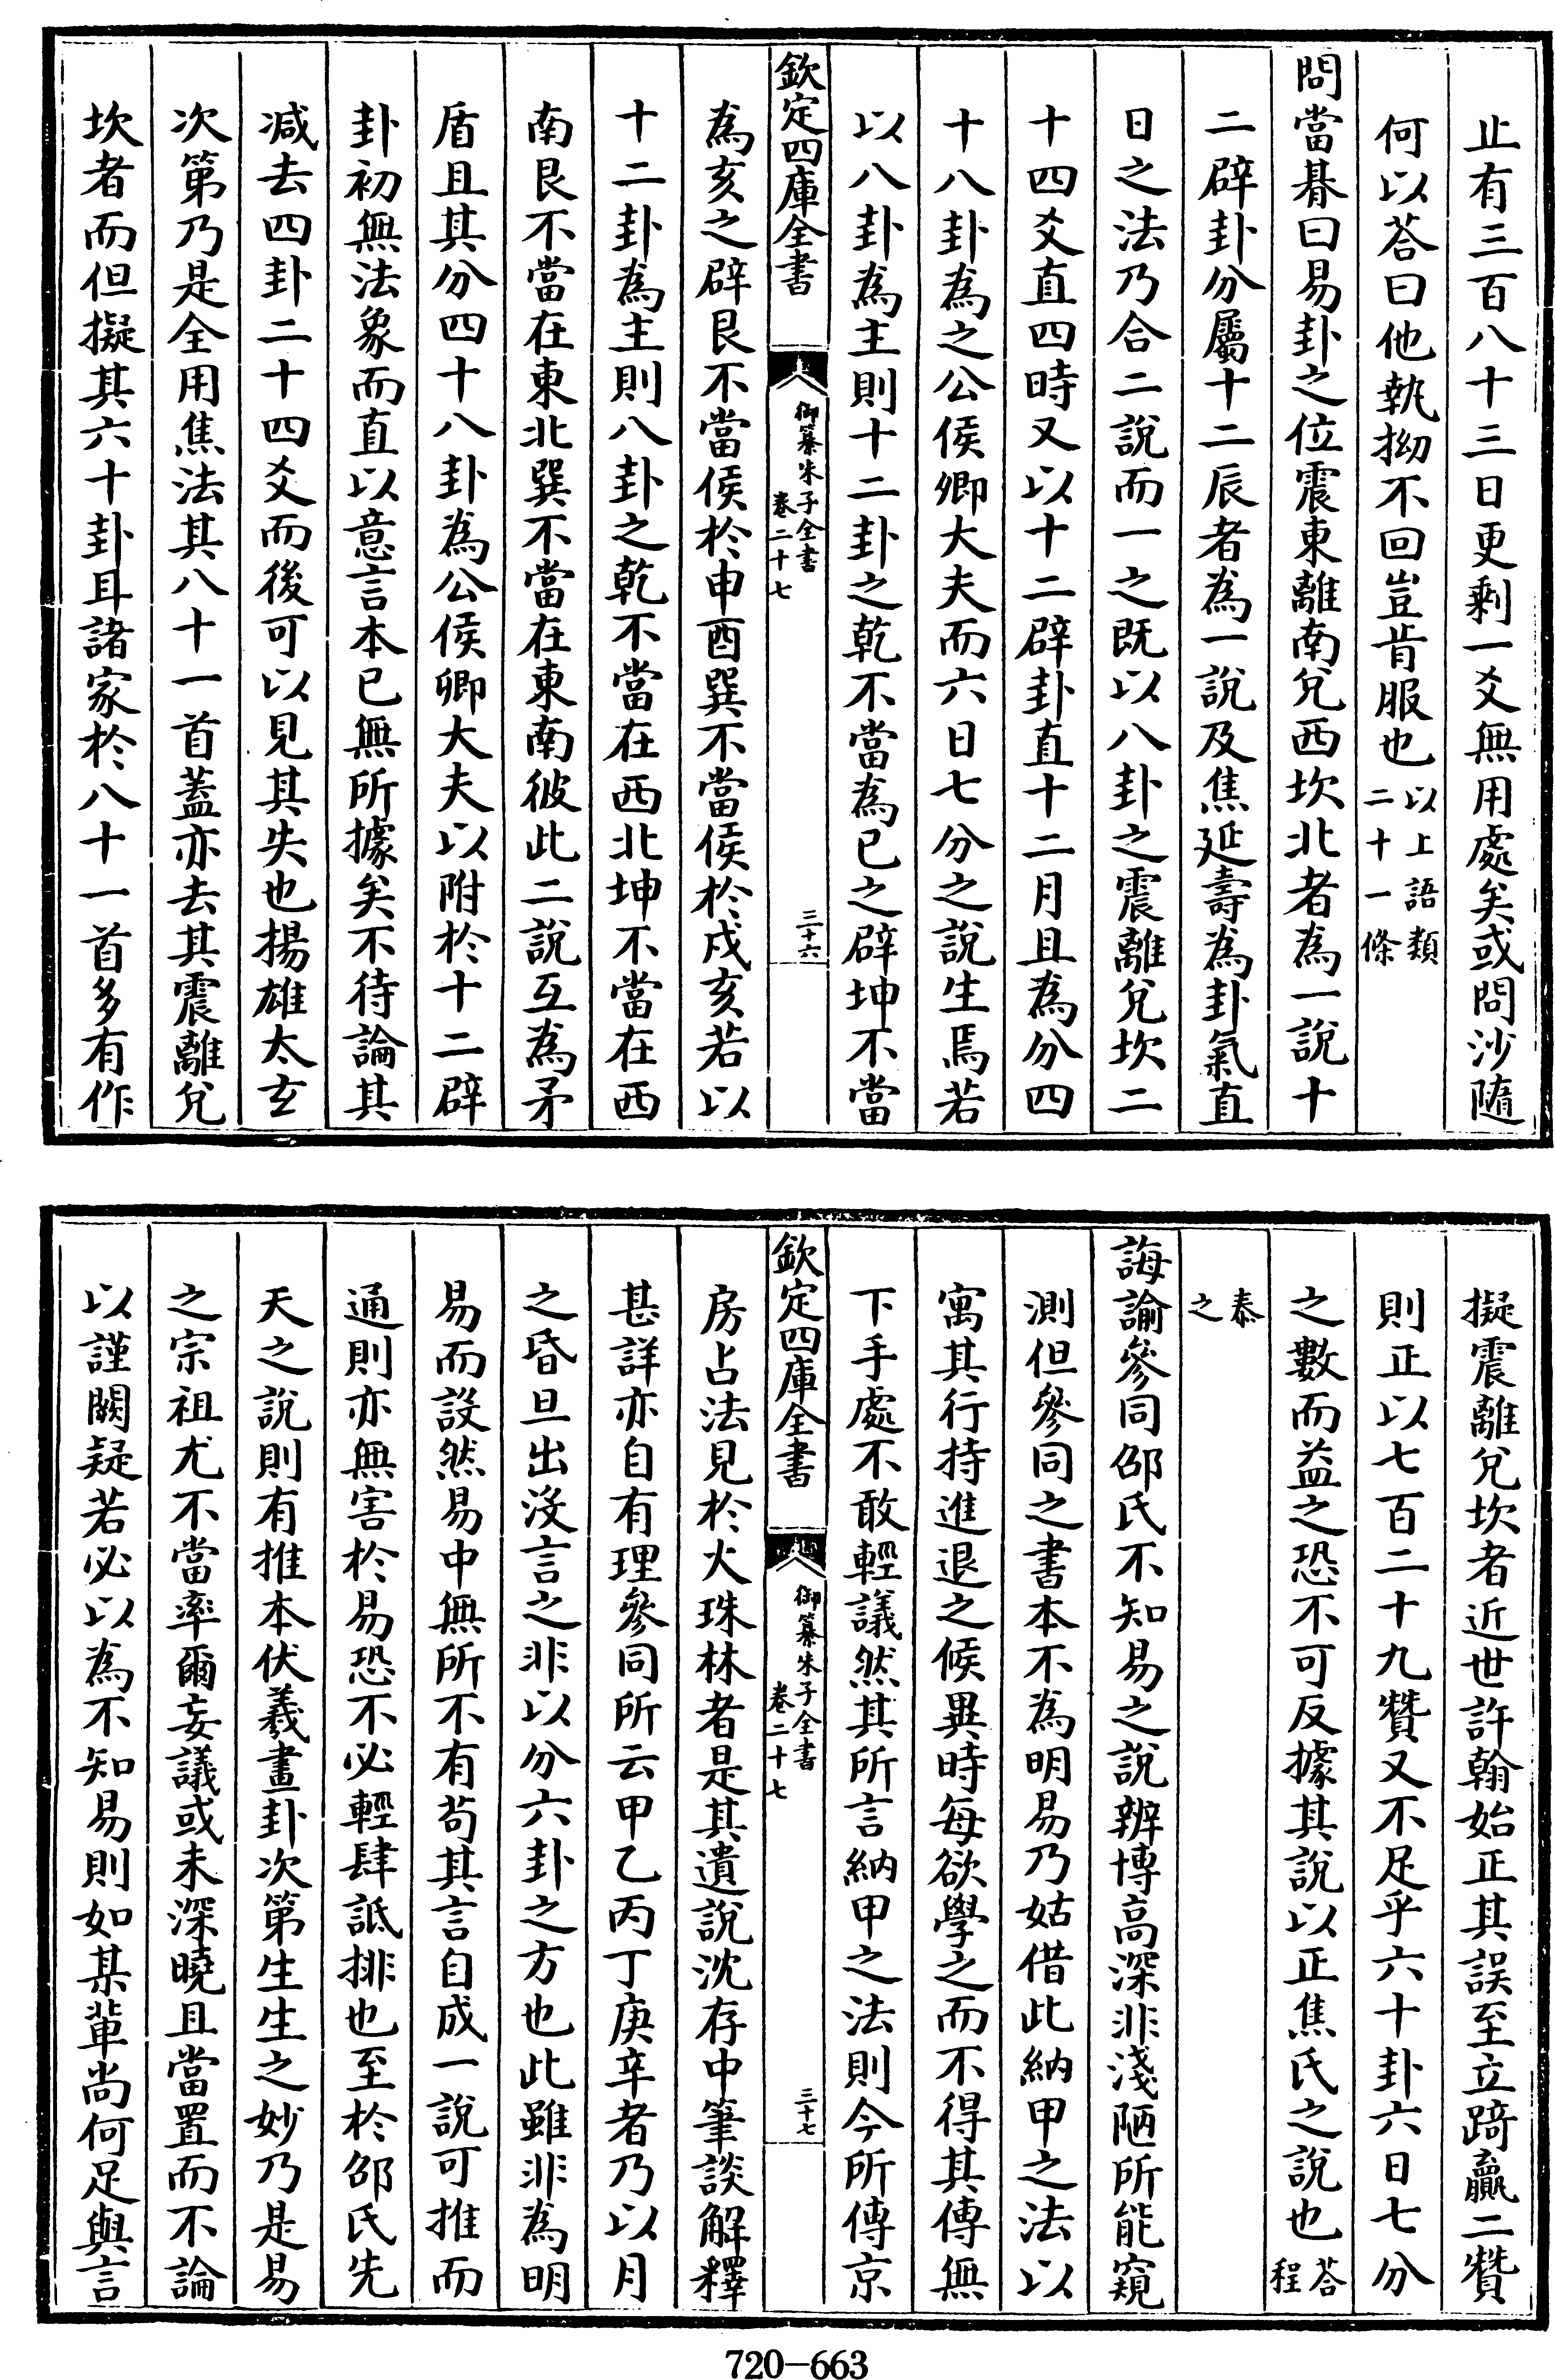 止有三百八十三日更剩一爻無用處矣或問沙隨
何以荅曰他執拗不回豈肯服也以上語類二十一條
問當朞曰易卦之位震東離南兌西坎北者為一說十
二辟卦分屬十二辰者為一說及焦延壽為卦氣直
日之法乃合二說而一之既以八卦之震離兌坎二
十四爻直四時又以十二辟卦直十二月且為分四
十八卦為之公侯卿大夫而六日七分之說生焉若
以八卦為主則十二卦之乾不當為已之辟坤不當
欽定四庫全書
御纂朱子全書
卷二十七
三十六
為亥之辟艮不當侯於申酉巽不當侯於戌亥若以
十二卦為主則八卦之乾不當在西北坤不當在西
南艮不當在東北巽不當在東南彼此二說互為矛
盾且其分四十八卦為公侯卿大夫以附於十二辟
卦初無法象而直以意言本已無所據矣不待論其
减去四卦二十四爻而後可以見其失也揚雄太玄
次第乃是全用焦法其八十一首蓋亦去其震離兌
坎者而但擬其六十卦耳諸家於八十一首多有作
擬震離兌坎者近世許翰始正其誤至立踦贏二贊
則正以七百二十九贊又不足乎六十卦六日七分
之數而益之恐不可反據其說以正焦氏之說也荅程
泰之
誨諭參同邵氏不知易之說辨博高深非淺陋所能窺
測但參同之書本不為明易乃姑借此納甲之法以
寓其行持進退之候異時每欲學之而不得其傳無
下手處不敢輕議然其所言納甲之法則今所傳京
欽定四庫全書
御纂朱子全書
卷二十七
三十七
房占法見於火珠林者是其遺說沈存中筆談解釋
甚詳亦自有理參同所云甲乙丙丁庚辛者乃以月
之昏旦出沒言之非以分六卦之方也此雖非為明
易而設然易中無所不有苟其言自成一說可推而
通則亦無害於易恐不必輕肆詆排也至於邵氏先
天之說則有推本伏羲畫卦次第生生之妙乃是易
之宗祖尤不當率爾妄議或未深曉且當置而不論
以謹闕疑若必以為不知易則如某輩尚何足與言
720-663